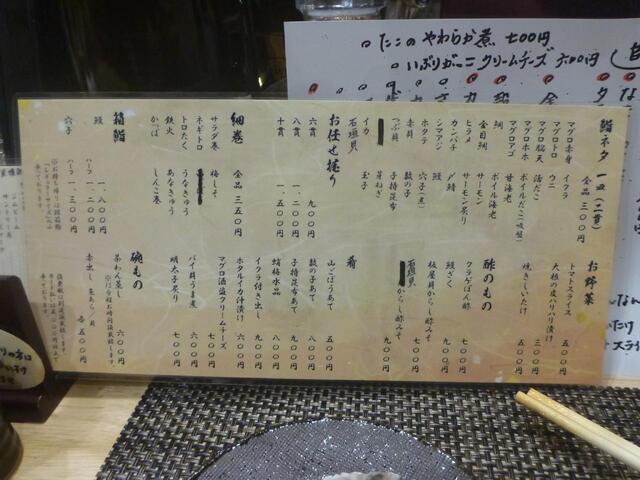 たこのやわらか煮 七〇〇円
いぶりがっこクリームチーズ 六〇〇円
鮨ネタ 一皿(二貫)
全品 三〇〇円
マグロ赤身
マグロトロ
マグロ脳天
マグロホホ
マグロアゴ
鯛
金目鯛
ヒラメ
カンパチ
シマアジ
ホタテ
赤貝
つぶ貝
イカ
石垣貝
イクラ
ウニ
活だこ
ボイルだこ(吸盤)
甘海老
ボイル海老
サーモン
サーモン炙り
〆鯖
鰻
穴子(煮)
数の子
子持昆布
芽ねぎ
玉子
お任せ握り
六貫 九〇〇円
八貫 一、二〇〇円
十貫 一、五〇〇円
細巻
全品 三五〇円
サラダ巻
ネギトロ
トロたく
鉄火
かっぱ
梅しそ
うなきゅう
あなきゅう
しんこ巻
箱鮨
鰻 一、八〇〇円
ハーフ
穴子 一、三〇〇円
ハーフ
お野菜
トマトスライス 五〇〇円
大根の皮ハリハリ漬け 三〇〇円
焼きしいたけ 五〇〇円
酢のもの
クラゲぽん酢 七〇〇円
鰻ざく 九〇〇円
板屋貝からし酢みそ 七〇〇円
石垣貝からし酢みそ 九〇〇円
肴
山ごぼうあて 五〇〇円
数の子あて 八〇〇円
子持昆布あて 九〇〇円
蛸梅水晶 八〇〇円
イクラ付き出し 九〇〇円
ホタルイカ汁漬け 六〇〇円
マグロ酒盗クリームチーズ 七〇〇円
バイ貝うま煮 七〇〇円
明太子炙り 七〇〇円
碗もの
茶わん蒸し 六〇〇円
赤出し 魚あら/貝 各五〇〇円